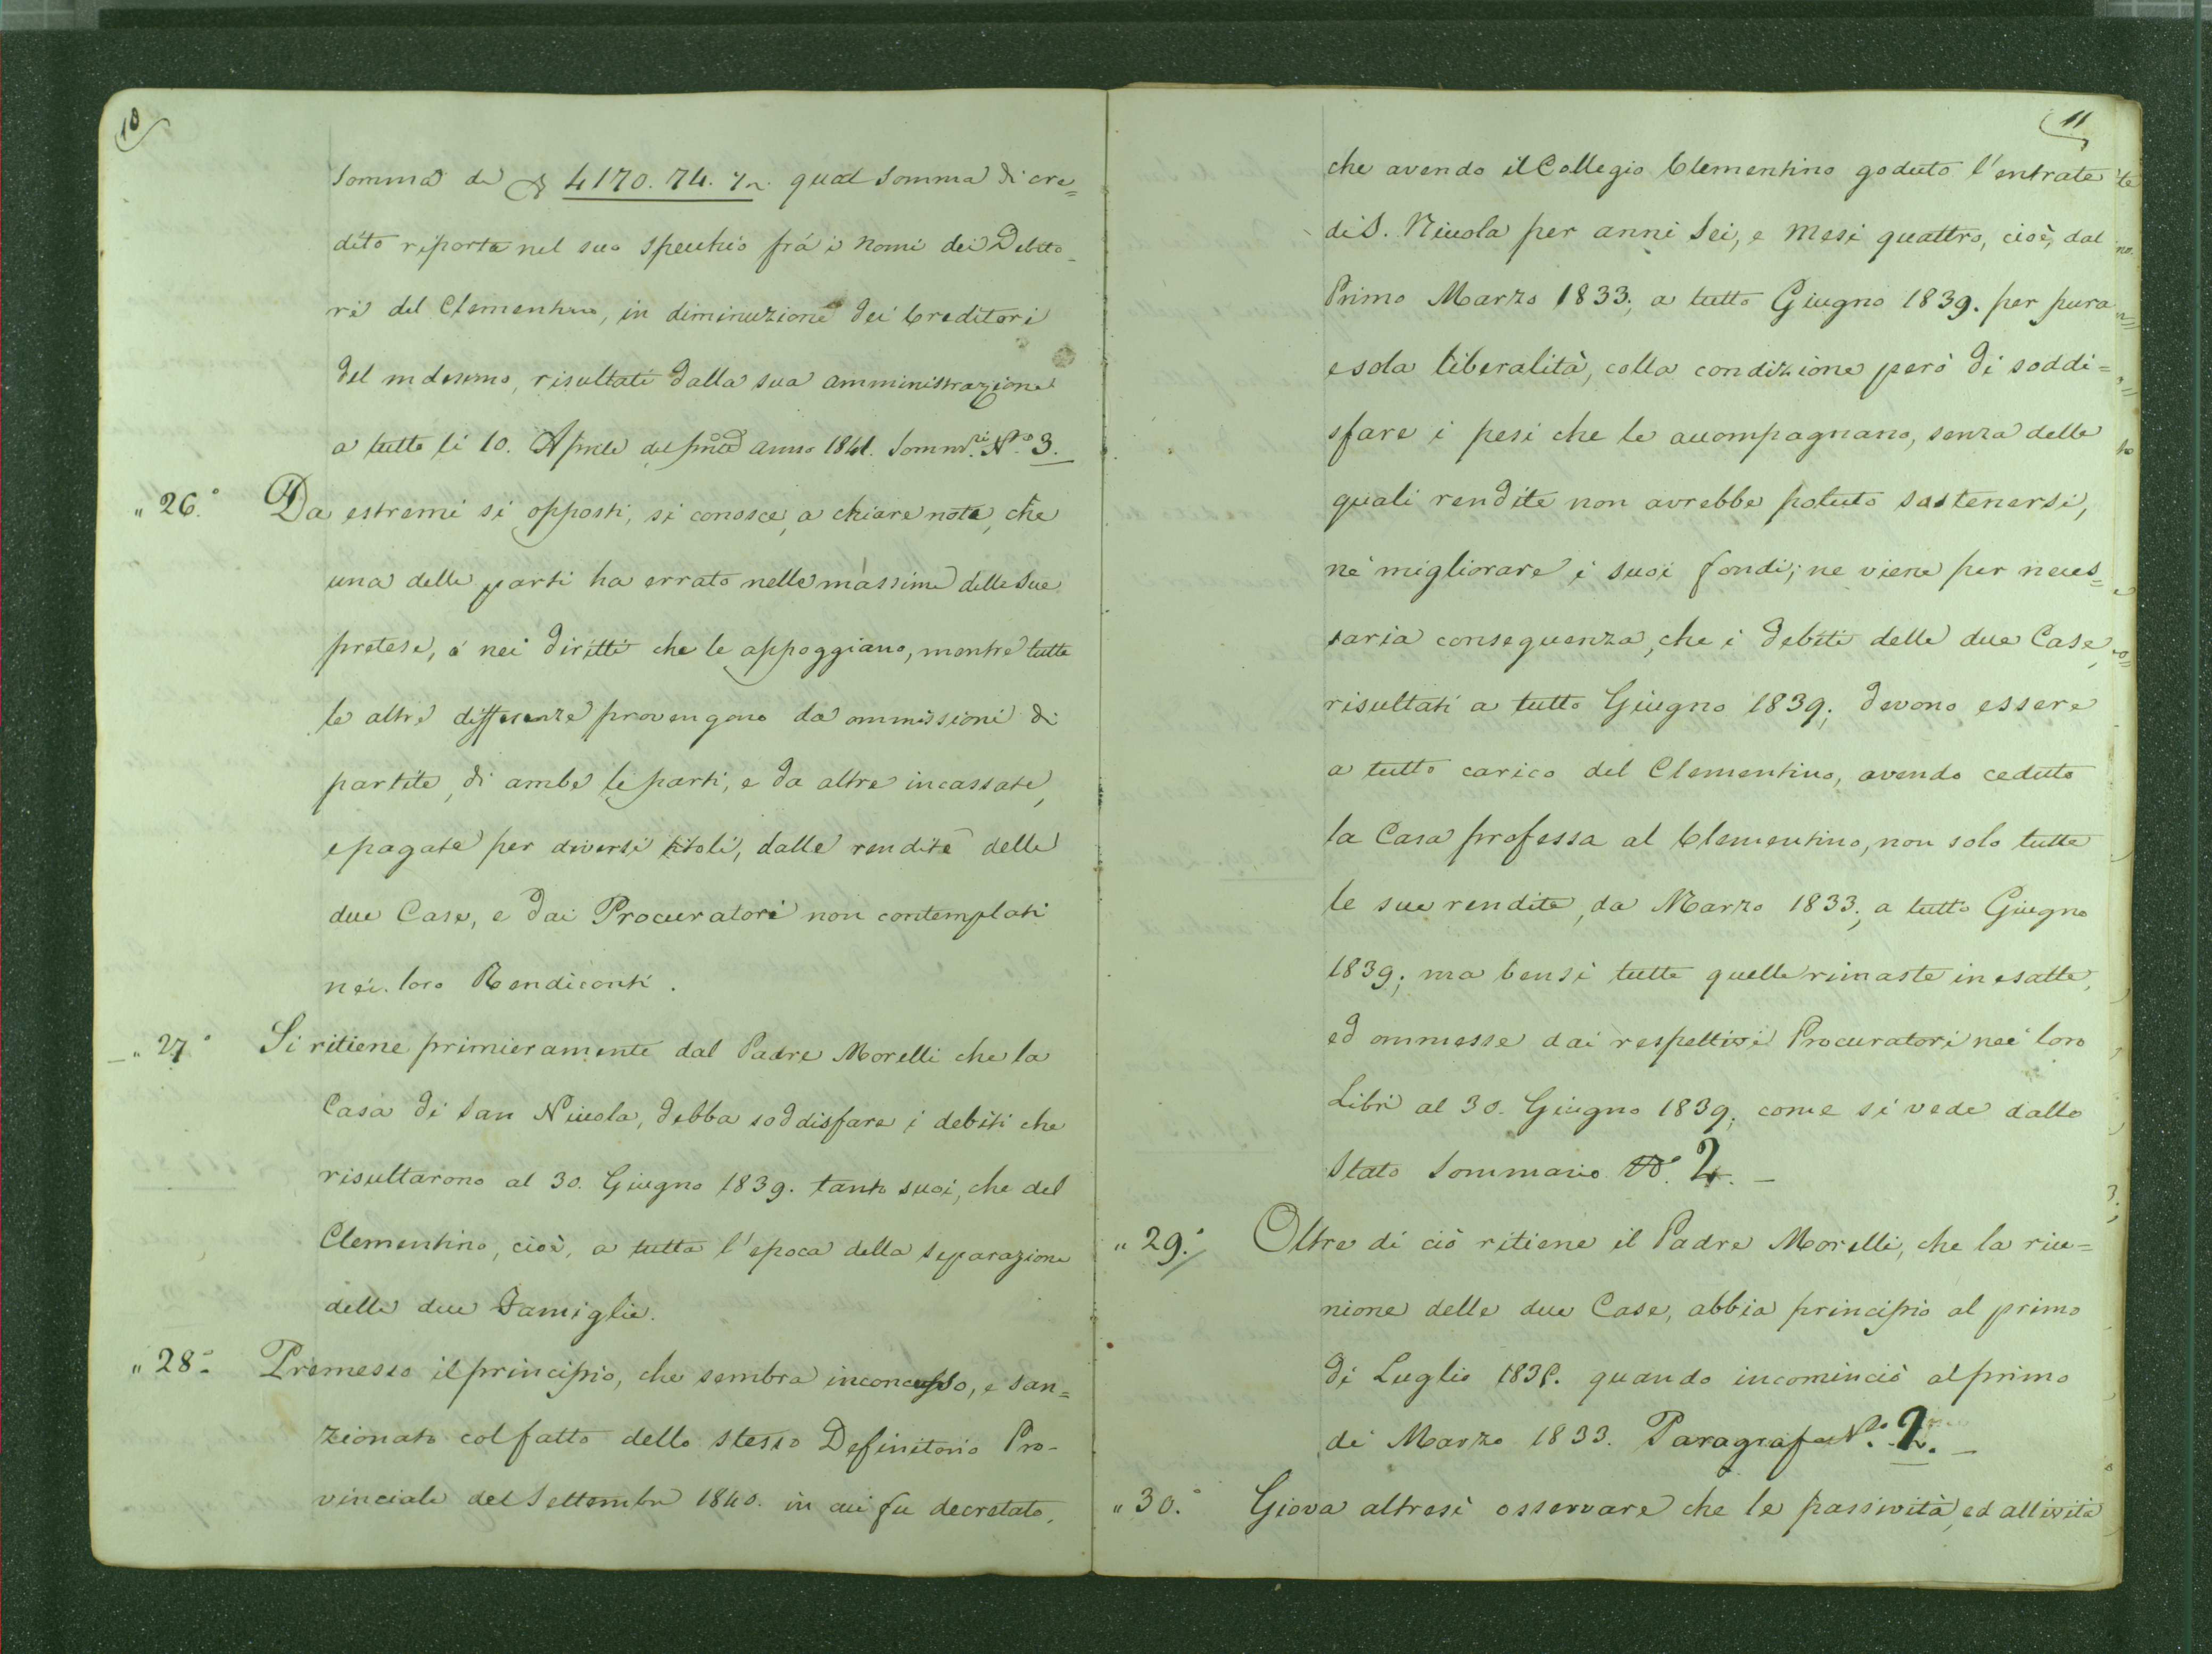 10
somma di 4170.74.½ qual somma di cre=
dito riporta nel suo specchio frà i nomi dei Debito=
ri del Clementino, in diminuzione dei Creditori
del medesimo, risultati dalla sua amministrazione
a tutto li 10. Aprile del anno 1841. Somm.ri N.o 3.
" 26.° Da estremi si opposti, si conosce, a chiare note, che
una delle parti ha errato nelle massime delle sue
pretese, ò nei diritti che le appoggiano, mentre tutte
le altre differenze provengono da ommissioni di
partite, di ambe le parti, e da altre incassate,
e pagate per diversi titoli, dalle rendite delle
due Case, e dai Procuratori non contemplati
nei loro Rendiconti.
" 27.° Si ritiene primieramente dal Padre Morelli che la
Casa di San Nicola, debba soddisfare i debiti che
risultarono al 30. Giugno 1839. tanto suoi, che del
Clementino, cioè, a tutta l'epoca della separazione
delle due Famiglie.
" 28.° Premesso il principio, che sembra inconcusso, e san=
zionato col fatto dello stesso Definitorio Pro-
vinciale del Settembre 1840. in cui fu decretato,
11
che avendo il Collegio Clementino goduto l'entrate
di S. Nicola per anni sei, e mesi quattro, cioè, dal
Primo Marzo 1833; a tutto Giugno 1839. per pura
e sola liberalità, colla condizione però di soddi=
sfare i pesi che le accompagnano, senza delle
quali rendite non avrebbe potuto sostenersi,
nè migliorare i suoi fondi; ne viene per neces=
saria conseguenza, che i debiti delle due Case,
risultati a tutto Giugno 1839; devono essere
a tutto carico del Clementino, avendo ceduto
la Casa professa al Clementino, non solo tutte
le sue rendite, da Marzo 1833; a tutto Giugno
1839; ma bensi tutte quelle rimaste inesatte,
ed ommesse dai respettivi Procuratori nei loro
Libri al 30. Giugno 1839; come si vede dallo
Stato Sommario N.° 2. –
" 29.° Oltre di ciò ritiene il Padre Morelli, che la riu=
nione delle due Case, abbia principio al primo
di Luglio 1835. quando incominciò al primo
di Marzo 1833. Paragrafo N.o 2. –
" 30.° Giova altresì osservare che le passività, ed attività